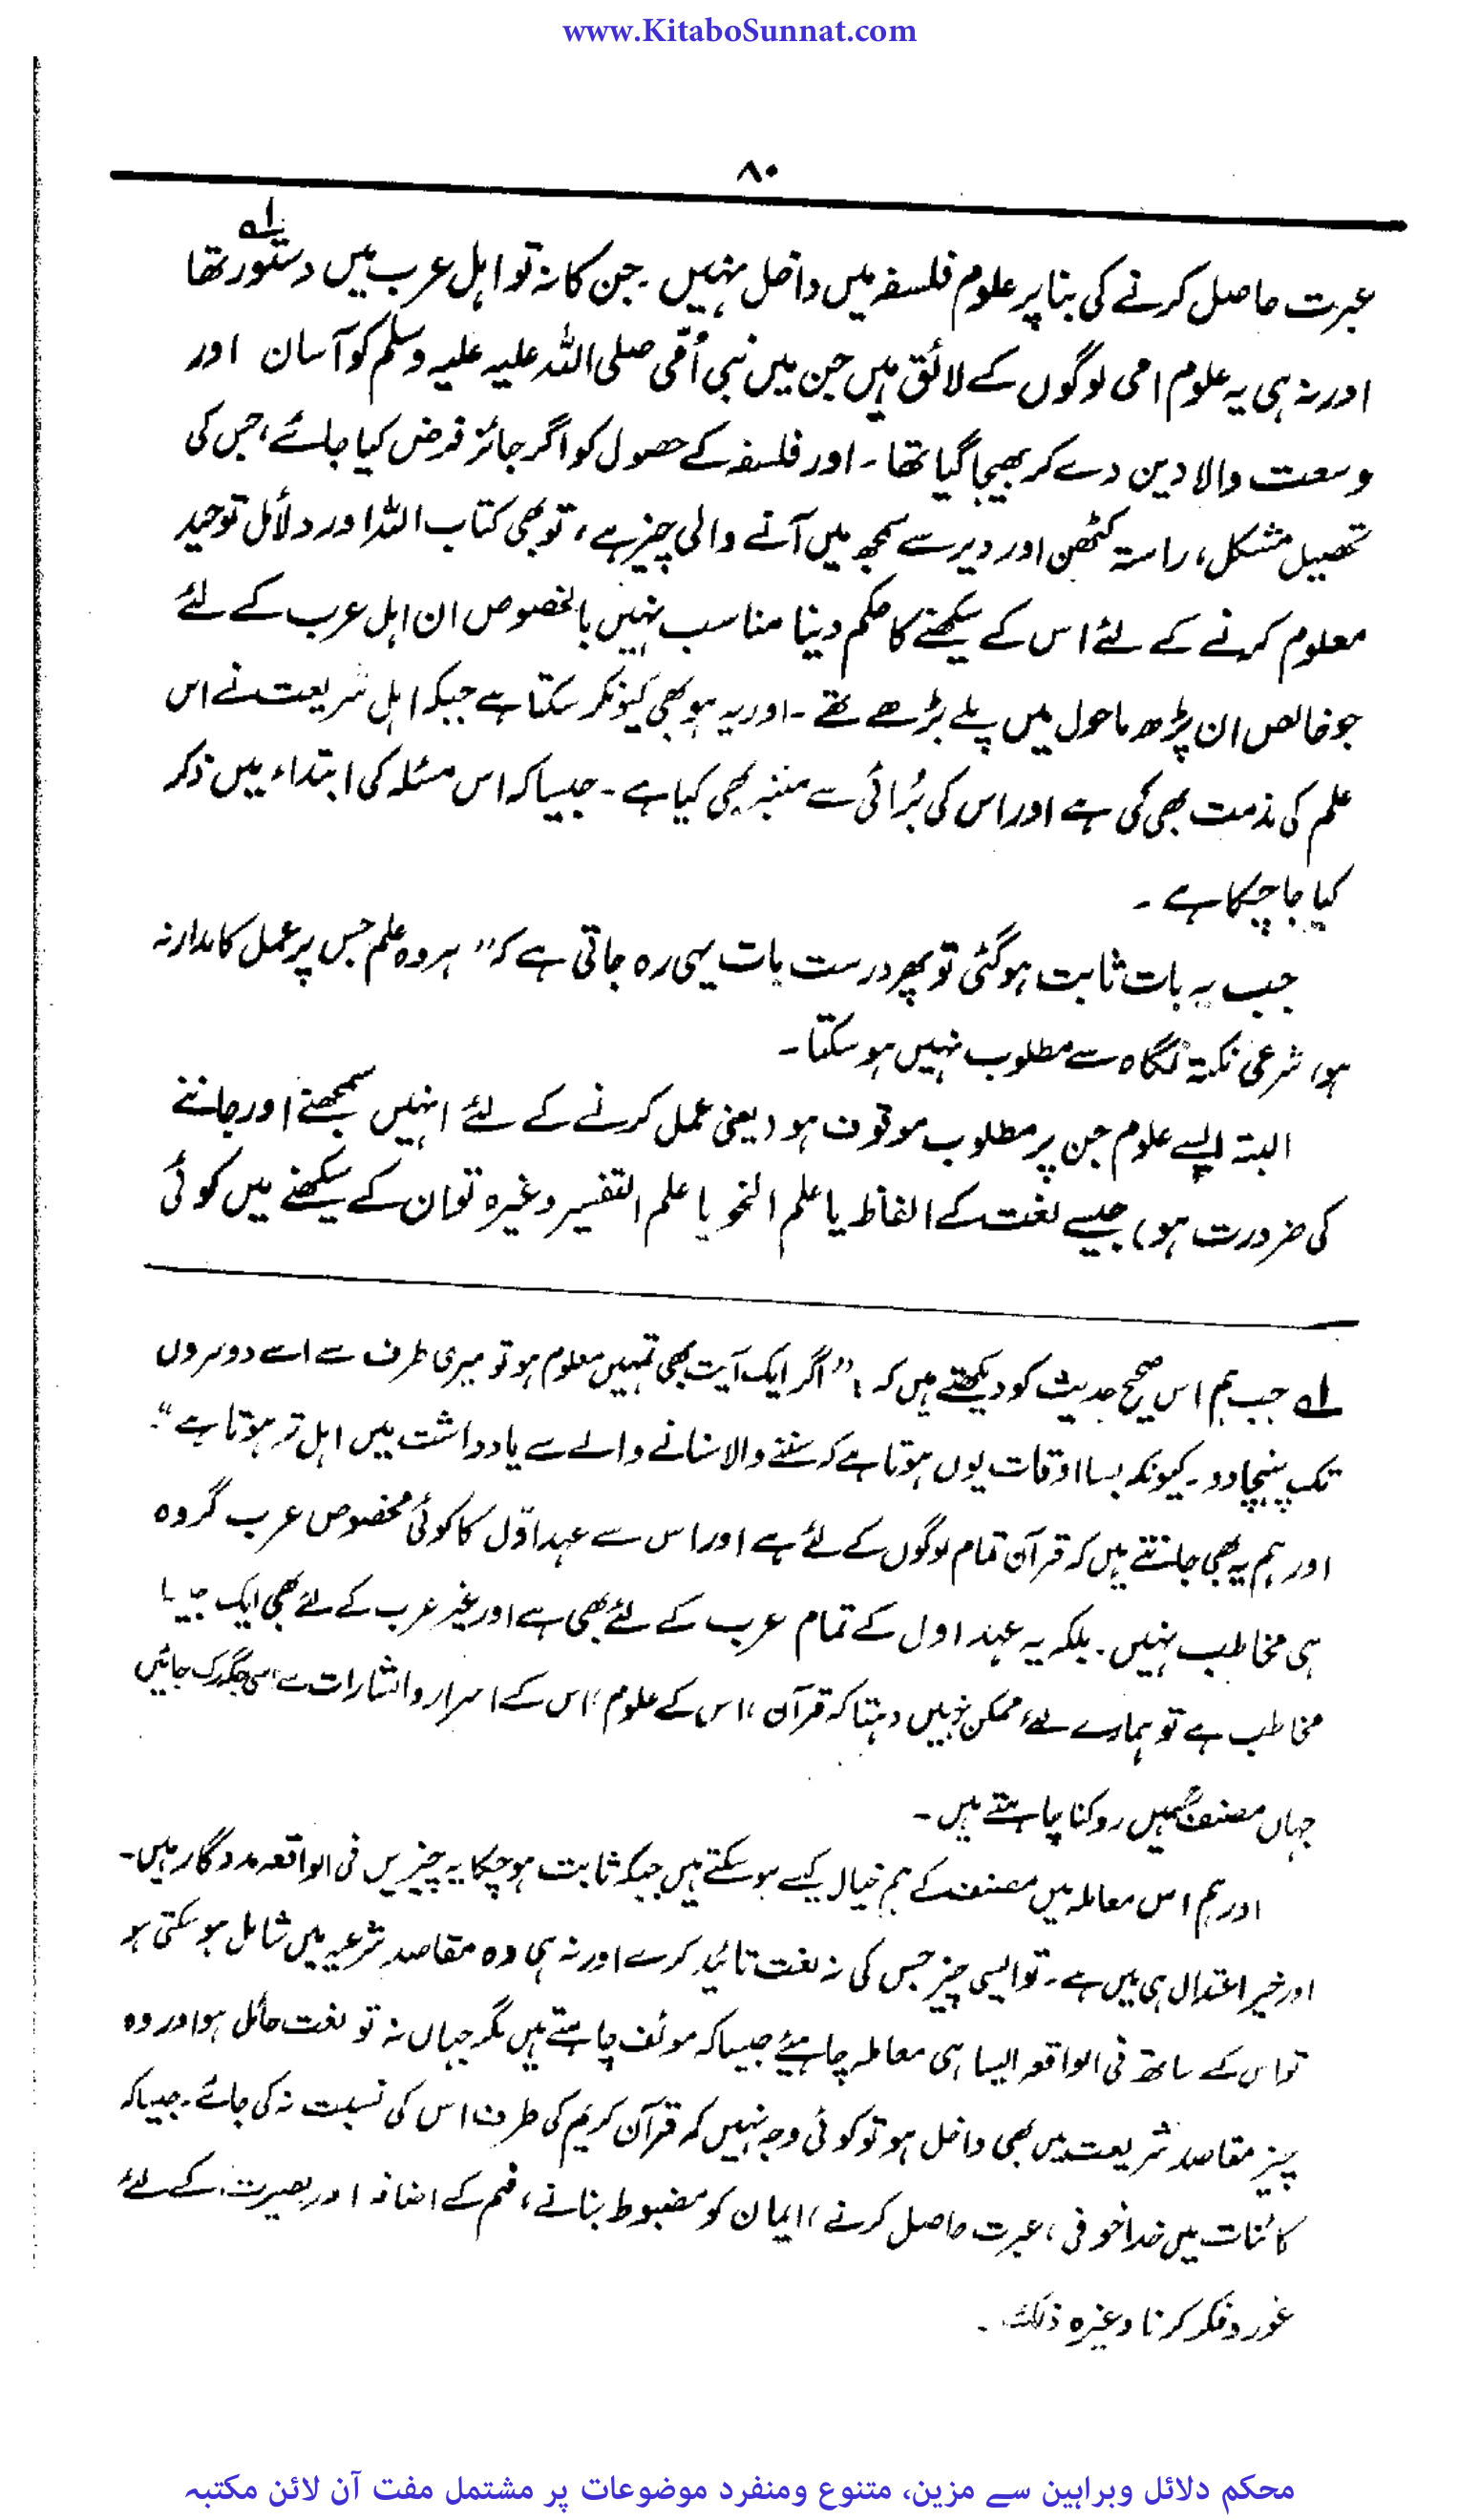 www.KitaboSunnat.com
۸۰
عبرت حاصل کرنے کی بنا پر علوم فلسفہ میں داخل نہیں۔ جن کا نہ تو اہل عرب میں دستور تھا لے
اور نہ ہی یہ علوم امی لوگوں کے لائق ہیں جن میں نبی اُمّی صلی اللہ علیہ علیہ وسلم کو آسان اور
وسعت والا دین دے کر بھیجا گیا تھا۔ اور فلسفہ کے حصول کو اگر جائز فرض کیا جائے، جس کی
تحصیل مشکل، راستہ کٹھن اور دیر سے سمجھ میں آنے والی چیز ہے، تو بھی کتاب اللہ اور دلائل توحید
معلوم کرنے کے لئے اس کے سیکھنے کا حکم دینا مناسب نہیں بالخصوص ان اہل عرب کے لئے
جو خالص ان پڑھ ماحول میں پلے بڑھے تھے۔ اور یہ ہو بھی کیونکر سکتا ہے جبکہ اہل شریعت نے اس
علم کی مذمت بھی کی ہے اور اس کی بُرائی سے متنبہ بھی کیا ہے۔ جیسا کہ اس مسئلہ کی ابتداء میں ذکر
کیا جا چکا ہے۔
جب یہ بات ثابت ہو گئی تو پھر درست بات یہی رہ جاتی ہے کہ "ہر وہ علم جس پر عمل کا مدار نہ
ہو، شرعی نکتہ نگاہ سے مطلوب نہیں ہو سکتا۔
البتہ ایسے علوم جن پر مطلوب موقوف ہو (یعنی عمل کرنے کے لئے انہیں سمجھنے اور جاننے
کی ضرورت ہو) جیسے لغت کے الفاظ یا علم النحو یا علم التفسیر وغیرہ تو ان کے سیکھنے میں کوئی
لے جب ہم اس صحیح حدیث کو دیکھتے ہیں کہ: "اگر ایک آیت بھی تمہیں معلوم ہو تو میری طرف سے اسے دوسروں
تک پہنچا دو۔ کیونکہ بسا اوقات یوں ہوتا ہے کہ سننے والا سنانے والے سے یادداشت میں اہل تر ہوتا ہے"۔
اور ہم یہ بھی جانتے ہیں کہ قرآن تمام لوگوں کے لئے ہے اور اس سے عہد اوّل کا کوئی مخصوص عرب گروہ
ہی مخاطب نہیں۔ بلکہ یہ عہد اول کے تمام عرب کے لئے بھی ہے اور غیر عرب کے لئے بھی ایک جیسا
مخاطب ہے تو ہمارے لئے ممکن نہیں رہتا کہ قرآن، اس کے علوم، اس کے اسرار و اشارات سے اسی جگہ رک جائیں
جہاں مصنفؒ ہمیں روکنا چاہتے ہیں۔
اور ہم اس معاملہ میں مصنف کے ہم خیال کیسے ہو سکتے ہیں جبکہ ثابت ہو چکا یہ چیزیں فی الواقعہ مددگار ہیں۔
اور خیر اعتدال ہی میں ہے۔ تو ایسی چیز جس کی نہ لغت تائید کرے اور نہ ہی وہ مقاصد شرعیہ میں شامل ہو سکتی ہو
تو اس کے ساتھ فی الواقعہ ایسا ہی معاملہ چاہیئے جیسا کہ مولف چاہتے ہیں مگر جہاں نہ تو لغت حائل ہو اور وہ
چیز مقاصد شریعت میں بھی داخل ہو تو کوئی وجہ نہیں کہ قرآن کریم کی طرف اس کی نسبت نہ کی جائے۔ جیسا کہ
کائنات میں خدا خوفی، عبرت حاصل کرنے، ایمان کو مضبوط بنانے، فہم کے اضافہ اور بصیرت کے لئے
غور و فکر کرنا وغیرہ ذلک۔
محکم دلائل وبراہین سے مزین، متنوع ومنفرد موضوعات پر مشتمل مفت آن لائن مکتبہ